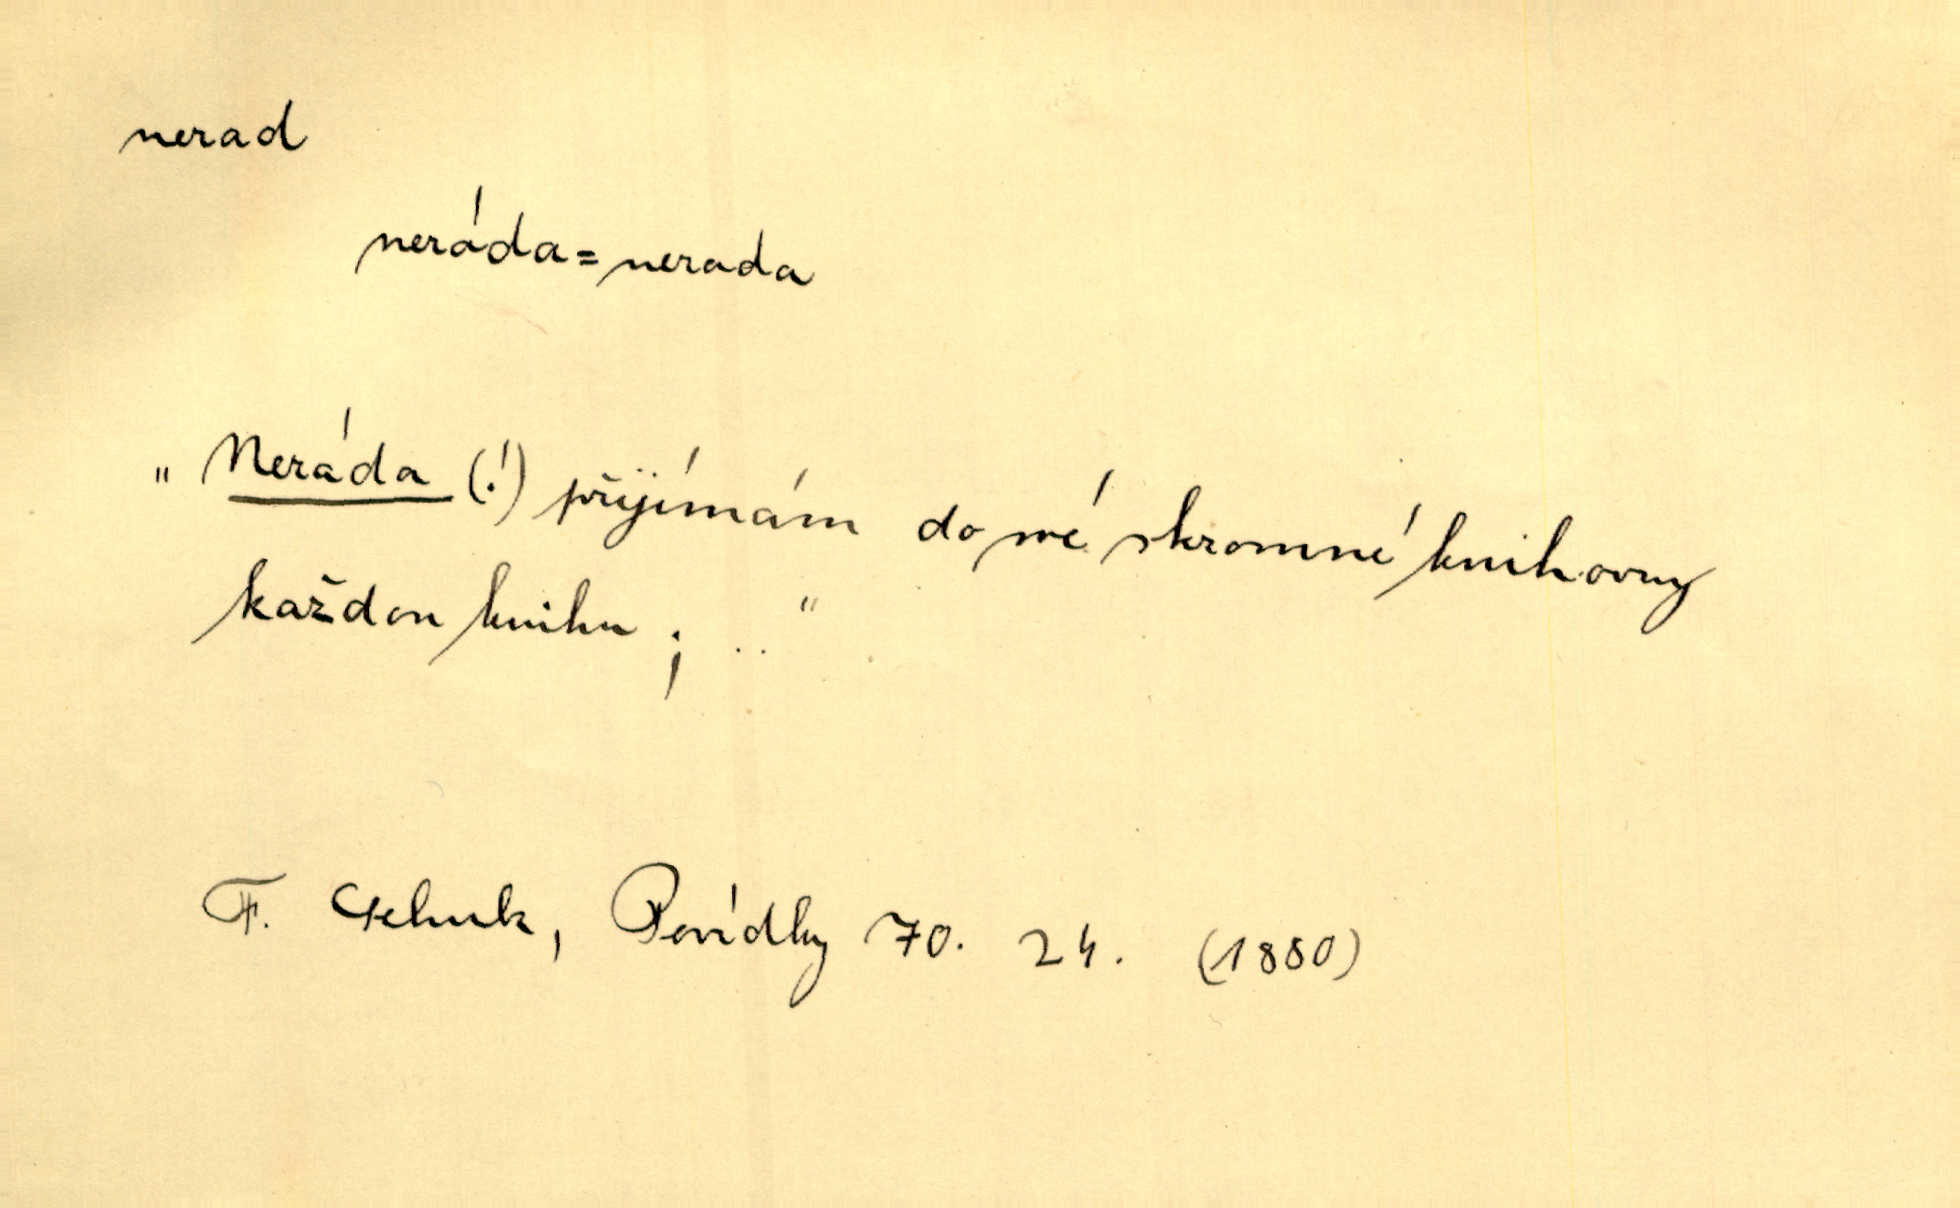 nerad
neráda = nerada
" Neráda (!) přijímám do mé skromné knihovny
každou knihu ; .. "
F. , Povídky 70. 24. (1880)